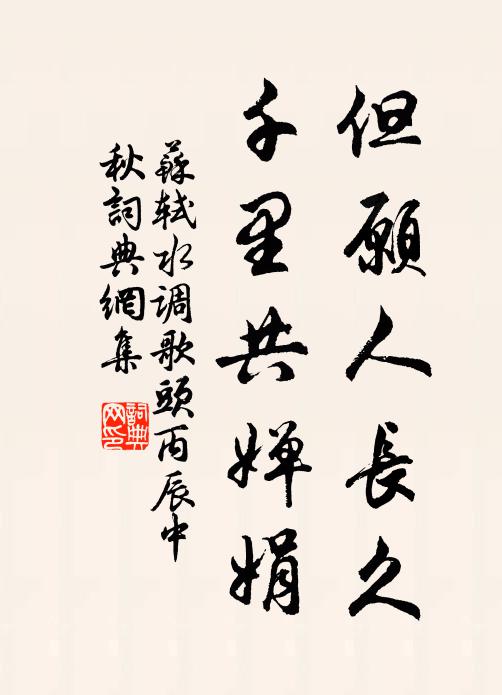 但願人長久
千里共嬋娟
蘇軾水调歌頭丙辰中
秋詞典網集
詞典
网印